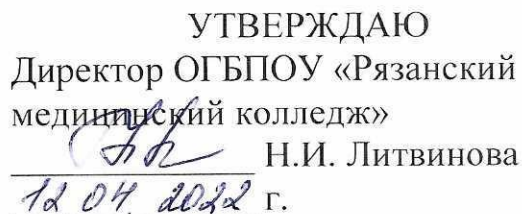 УТВЕРЖДАЮ
Директор ОГБПОУ «Рязанский
медицинский колледж»
Н.И. Литвинова
12 04 2022 г.